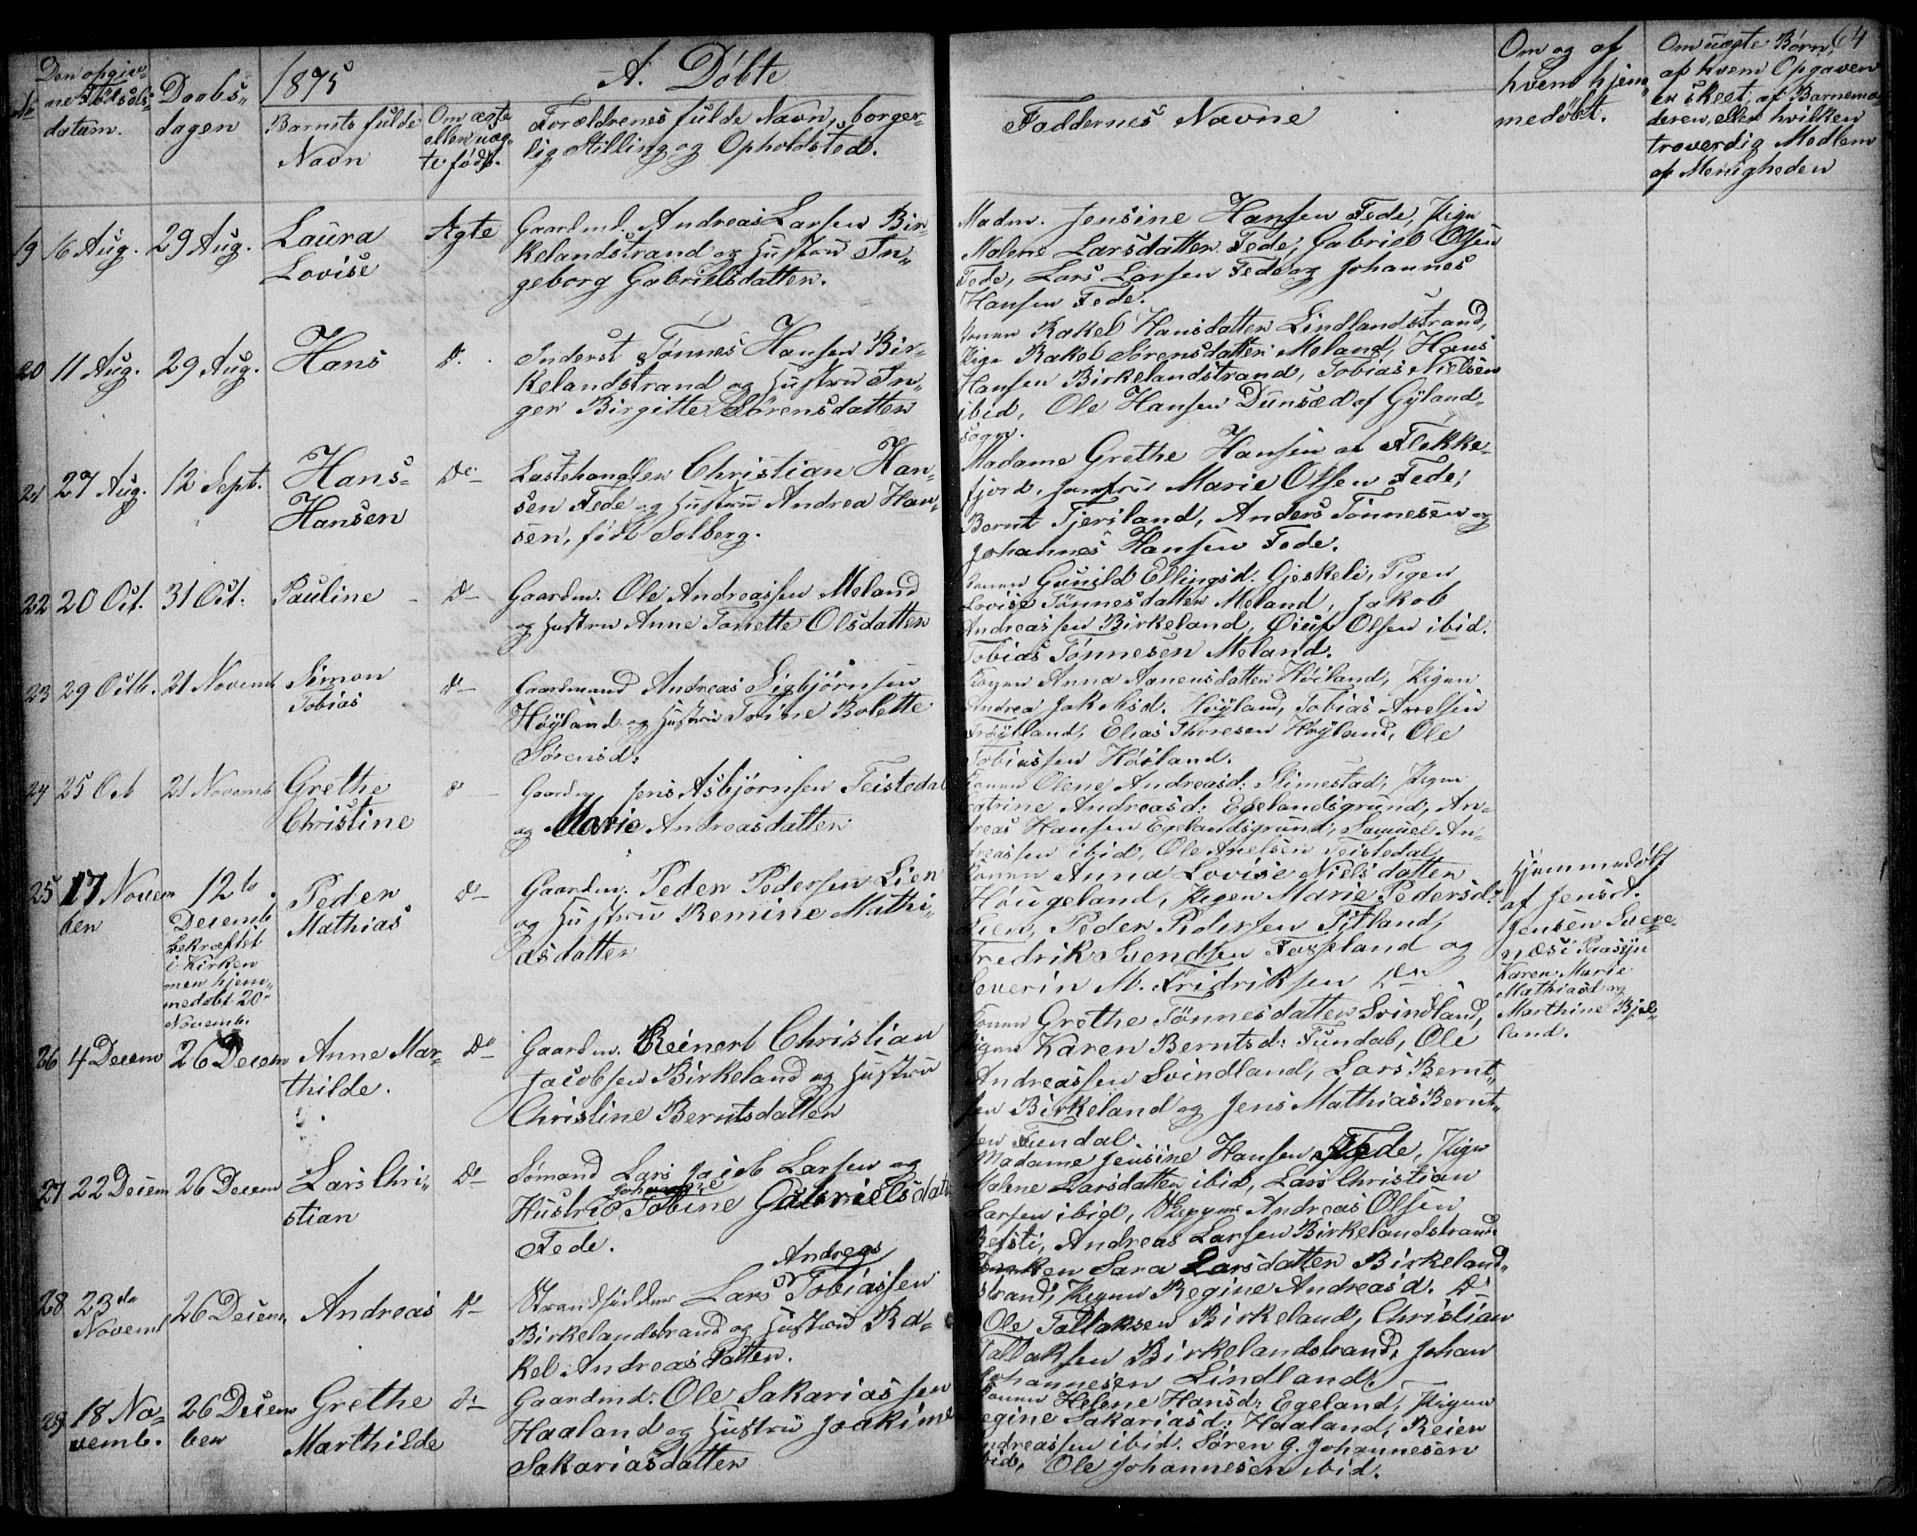 64
1875
A. Døbte
No
Den opgiv-
ne Fødsels-
datum.
Daabs-
dagen
Barnets fulde
Navn
Om ægte
eller uæg-
te født.
Forældrenes fulde Navn, borger-
lig Stilling og Opholdsted.
Faddernes Navne
Om og af
hvem hjem-
medøbt.
Om uægte Børn,
af hvem Opgaven
er skeet, af Barnemo-
deren, eller hvilken
troværdig Medlem
af Menigheden
19 16 Aug. 29 Aug. Laura
Lovise
Ægte
Gaardmd. Andreas Larsen Bir-
kelandstrand og Hustru In-
geborg Gabrielsdatter.
Madm. Jensine Hansen Fede, Pign
Malene Larsdatter Fede, Gabriel Olsen
Fede, Lars Larsen Fede og Johannes
Hansen Fede.
20 11 Aug. 29 Aug. Hans
Do
Inderst Tønnes Hansen Bir-
kelandstrand og Hustru In-
ger Birgitte Sørensdatter
Konen Rakel Hansdatter Lindlandstrand,
Pige Rakel Sørensdatter Meland, Hans
Hansen Birkelandstrand, Tobias Nielsen
ibid, Ole Hansen Dunsæd af Gyland-
sogn.
21 27 Aug. 12 Sept. Hans
Hansen
Do
Lastehandler Christian Han-
sen Fede og Hustru Andrea Han-
sen, født Solberg.
Madame Grethe Hansen af Flekke-
fjord, Jomfru Marie Olsen Fede,
Bernt Tjersland, Anders Tønnesen og
Johannes Hansen Fede.
22 20 Oct. 31 Oct. Pauline
Do
Gaardm. Ole Andreassen Meland
og Hustru Anne Tonette Olsdatter
Konen Gunild Ellingsd. Gjeskeli, Pigen
Lovise Tønnesdatter Meland, Jakob
Andreassen Birkeland, Olsen ibid.
Tobias Tønnesen Meland.
23 29 Octb. 21 Novemb Simon
Tobias
Do
Gaardmand Andreas Sigbjørnsen
Høyland og Hustru Trine Bolette
Sørensd:
Konen Anna Aanensdatter Høiland, Pigen
Andrea Jakobsd. Høyland, Tobias Axelsen
Frøytland, Elias Thoresen Høyland, Ole
Tobiassen Høiland.
24 25 Oct 21 Novemb Grethe
Christine
Do
Gaardm. Jens Asbjørnsen Teistedal
og Marie Andreasdatter
Konen Olene Andreasd: Slimestad, Pigen
Katrine Andreasd: Egelandsgrund, An-
dreas Hansen Egelandsgrund, Samuel An-
dreassen ibid, Ole Axelsen Teistedal
25 17 Novem
ber
12te
Decemb
bekræftet
i Kirken
men hjem-
medøbt 20de
Novemb.
Peder
Mathias
Do
Gaardm. Peder Pedersen Lien
og Hustru Remine Mathi-
asdatter
Konen Anna Lovise Nielsdatter
Høugeland, Pigen Marie Pedersd:
Lien, Peder Pedersen Titland,
Fredrik Svendsen Fosseland og
Severin M. Fridriksen Do
Hjemmedøbt
af Jens
Jensen Svege
næs i Paasyn
Karen Marie
Mathiasd og
Marthine Bjel-
land.
26 4 Decem 26 Decem Anne Mar-
thilde.
Do
Gaardm. Reinert Christian
Jacobsen Birkeland og Hustru
Christine Berntsdatter
Konen Grethe Tønnesdatter Svindland,
Pigen Karen Berntsd: Fundal, Ole
Andreassen Svindland, Lars Bernt-
sen Birkeland og Jens Mathias Bernt-
sen Fundal
27 22 Decem 26 Decem Lars Chri-
stian
Do
Sømand Lars Jacob Larsen og
Hustru Tobine Gabrielsdat
Fede.
Madame Jensine Hansen Fede, Pign
Malene Larsdatter ibid, Lars Christian
Larsen ibid, Andreas Olsen
Refsti, Andreas Larsen Birkelandstrand
28 23de
Novemb
26 Decem Andreas
Do
Andreas
Strandsidder Lars Tobiassen
Birkelandstrand og Hustru Ra-
kel Andreasdatter.
Sara Larsdatter Birkeland-
strand, Pigen Regine Andreasd. Do
Ole Tallaksen Birkeland, Christian
Tallaksen Birkelandstrand, Johan
Johannesen Lindland.
29 18 No-
vemb.
26 Decem
ber
Grethe
Marthilde
Do
Gaardmd: Ole Sakariassen
Haaland og Hustru Joakime
Sakariasdatter
Konen Helene Hansd: Egeland, Pigen
Regine Sakariasd: Haaland, Reier
Andreassen ibid. Søren G. Johannesen
ibid, Ole Johannesen ibid.